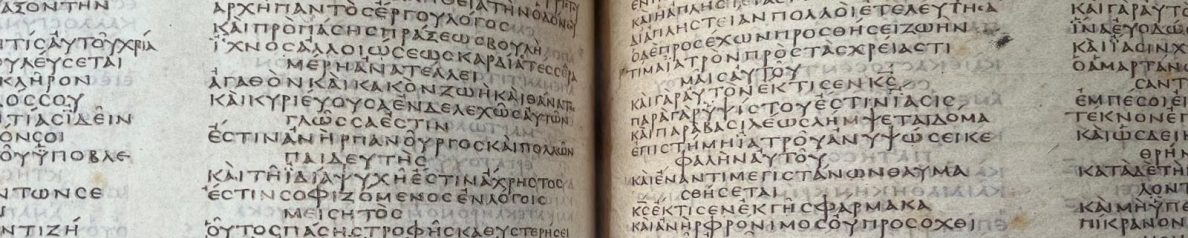 ΑΖΟΝΤΗΝ
ΝΤΙϹΑΥΤΟΥΧΡΙΑ
ΟΥΛΕΥϹΕΤΑΙ
ΚΛΗΡΟΝ
ΛΟϹϹΟΥ
ΝΤΙΑϹΙΔΕΙΝ
ΟΝϹΟΙ
ΟΥΫΠΟΒΛΕ
ΝΤΩΝϹΕ
ΝΤΙΖΗ
ΑΡΧΗΠΑΝΤΟϹΕΡΓΟΥΛΟΓΟϹ
ΚΑΙΠΡΟΠΑϹΗϹΠΡΑΞΕΩϹΒΟΥΛΗ
ΙΧΝΟϹΑΛΛΟΙΩϹΕΩϹΚΑΡΔΙΑΤΕϹϹΕΡΑ
ΜΕΡΗΑΝΑΤΕΛΛΕΙ
ΑΓΑΘΟΝΚΑΙΚΑΚΟΝΖΩΗΚΑΙΘΑΝΑΤΟϹ
ΚΑΙΚΥΡΙΕΥΟΥϹΑΕΝΔΕΛΕΧΩϹΑΥΤΩΝ
ΓΛΩϹϹΑΕϹΤΙΝ
ΕϹΤΙΝΑΝΗΡΠΑΝΟΥΡΓΟϹΚΑΙΠΟΛΛΩΝ
ΠΑΙΔΕΥΤΗϹ
ΚΑΙΤΗΙΔΙΑΨΥΧΗΕϹΤΙΝΑΧΡΗϹΤΟϹ
ΕϹΤΙΝϹΟΦΙΖΟΜΕΝΟϹΕΝΛΟΓΟΙϹ
ΜΕΙϹΗΤΟϹ
ΟΥΤΟϹΠΑϹΗϹΤΡΟΦΗϹΚΑΘΥϹΤΕΡΗϹΕΙ
ΔΙΑΠΛΗϹΤΕΙΑΝΠΟΛΛΟΙΕΤΕΛΕΥΤΗϹΑ
ΟΔΕΠΡΟϹΕΧΩΝΠΡΟϹΘΗϹΕΙΖΩΗΝ
ΤΙΜΑΙΑΤΡΟΝΠΡΟϹΤΑϹΧΡΕΙΑϹΤΙ
ΜΑΙϹΑΥΤΟΥ
ΚΑΙΓΑΡΑΥΤΟΝΕΚΤΙϹΕΝΚϹ
ΠΑΡΑΓΑΡΥΨΙϹΤΟΥΕϹΤΙΝΙΑϹΙϹ
ΚΑΙΠΑΡΑΒΑϹΙΛΕΩϹΛΗΜΨΕΤΑΙΔΟΜΑ
ΕΠΙϹΤΗΜΗΙΑΤΡΟΥΑΝΥΨΩϹΕΙΚΕ
ΦΑΛΗΝΑΥΤΟΥ
ΚΑΙΕΝΑΝΤΙΜΕΓΙϹΤΑΝΩΝΘΑΥΜΑ
ϹΘΗϹΕΤΑΙ
ΚϹΕΚΤΙϹΕΝΕΚΓΗϹΦΑΡΜΑΚΑ
ΚΑΙΑΝΗΡΦΡΟΝΙΜΟϹΟΥΠΡΟϹΟΧΘΙ
ΚΑΙΓΑΡΑΥΤΟ
ΙΝΑΕΥΟΔΩ
ΚΑΙΙΑϹΙΝΧ
ΟΑΜΑΡΤΑΝΩ
ϹΑΝΤ
ΕΜΠΕϹΟΙΕΙ
ΤΕΚΝΟΝΕΠ
ΚΑΙΩϹΔΕΙΝ
ΘΡΗΝ
ΚΑΤΑΔΕΤΗΝ
ΚΑΙΜΗΥΠΕ
ΠΙΚΡΑΝΟΝ